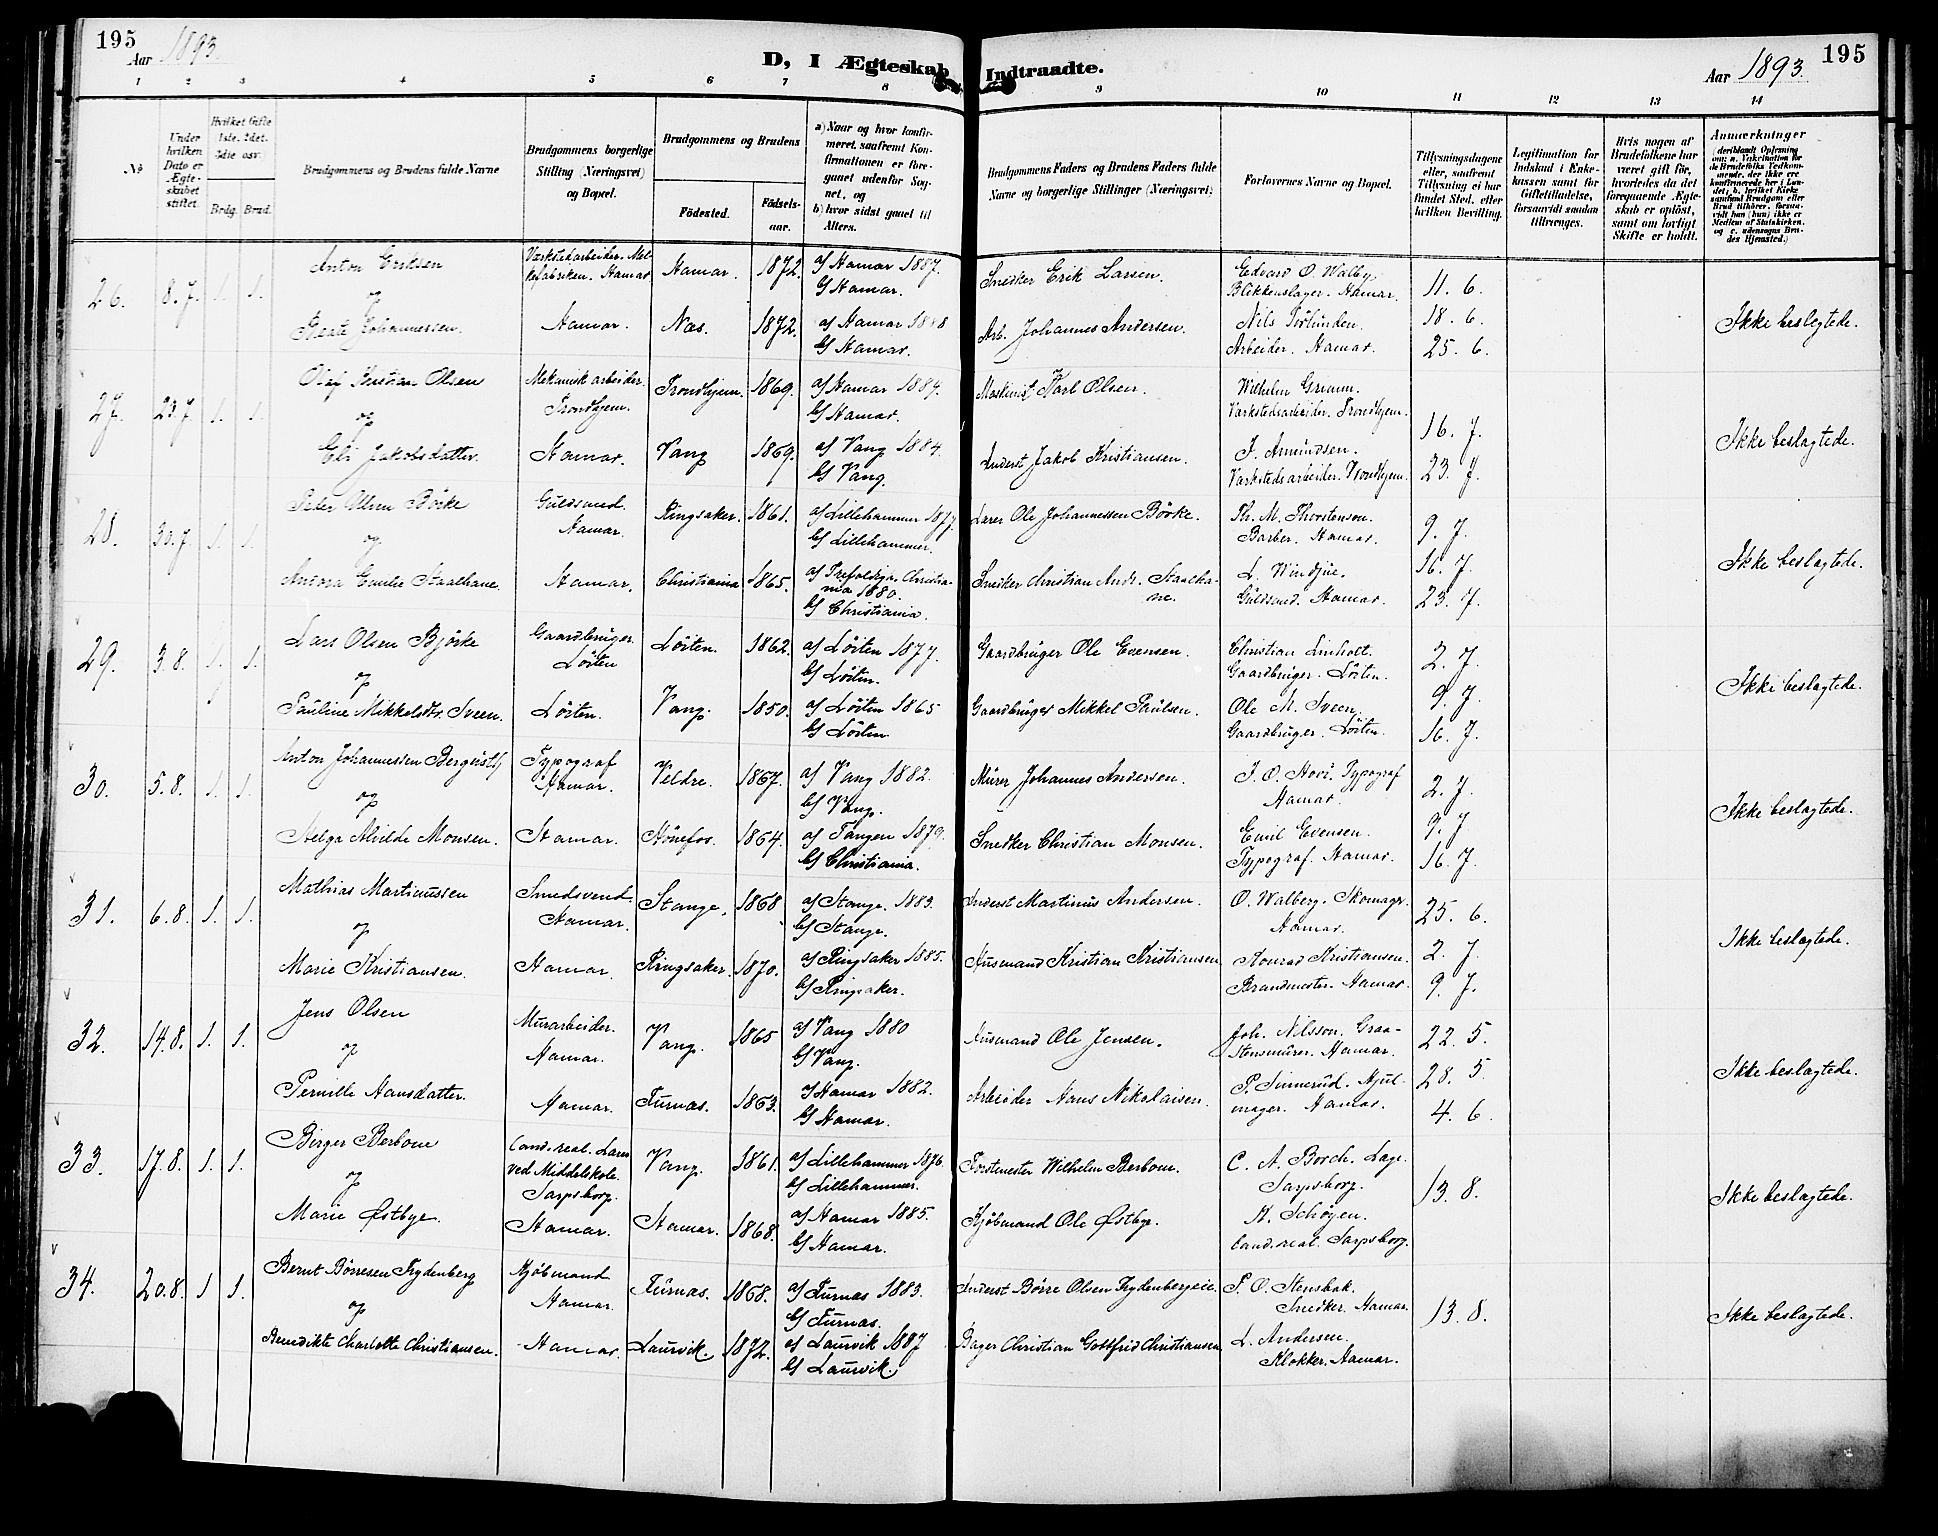 195
Aar 1893.
D, I Ægteskab Indtraadte.
Aar 1893.
195
1 2 3 4 5 6 7 8 9 10 11 12 13 14
No
Under hvilken Dato er Ægteskabet stiftet.
Hvilket Gifte 1ste, 2det, 3die osv.
Brdg. Brud.
Brudgommens og Brudens fulde Navne
Brudgommens borgerlige Stilling (Næringsvei) og Bopæl.
Brudgommens og Brudens
Fødested.
Fødselsaar.
a) Naar og hvor konfirmeret, saafremt Konfirmationen er foregaaet udenfor Sognet, og
b) hvor sidst gaaet til Alters.
Brudgommens Faders og Brudens Faders fulde Navne og borgerlige Stillinger (Næringsvei)
Forlovernes Navne og Bopæl.
Tillysningsdagene eller, saafremt Tillysning ei har fundet Sted, efter hvilken Bevilling.
Legitimation for Indskud i Enkekassen samt for Giftetilladelse, forsaavidt saadan tiltrænges.
Hvis nogen af Brudefolkene har været gift før, hvorledes da det foregaaende Ægteskab er opløst, samt om lovligt Skifte er holdt.
Anmærkninger
26. 8.7. 1. 1. Anton Eriksen Værkstedarbeider. Melkefabriken. Hamar Hamar. 1872. a) Hamar 1887. b) Hamar. Snedker Erik Larsen. Edvard O. Walby, Blikkenslager. Hamar. 11. 6.
og
Beate Johannessen. Hamar. Næs. 1872. a) Hamar 1888 b) Hamar. Arb. Johannes Andersen. Nils Torlunden. Arbeider. Hamar. 18. 6. 25. 6. Ikke beslegtede.
27. 23.7. 1. 1. Olaf Kristian Olsen Mekanisk arbeider. Trondhjem. Trondhjem. 1869. a) Hamar 1884. b) Hamar. Maskinist Karl Olsen. Wilhelm Grimm. Værkstedsarbeider. Trondhjem. 16. 7.
og
Eli Jakobsdatter. Hamar. Vang 1869. a) Vang 1884. b) Vang. Inderst Jakob Kristiansen. J. Amundsen. Værkstedsarbeider. Trondhjem. 23. 7. Ikke beslægtede.
28. 30.7. 1. 1. Peter Olsen Börke Guldsmed. Hamar. Ringsaker. 1861. a) Lillehammer 1877. b) Lillehammer. Lærer Ole Johannessen Börke. Th. M. Thorstenson. Barber. Hamar. 9. 7.
og
Aurora Emilie Staalhane. Hamar. Christiania 1865. a) Trefoldigh. Christiania 1880. b) Christiania. Snedker Christian Andr. Staalhane. L. Windju. Guldsmed. Hamar. 16. 7. 23. 7. Ikke beslægtede.
29. 3.8. 1. 1. Lars Olsen Bjørke Gaardbruger. Löiten Löiten. 1862. a) Löiten 1877. b) Löiten. Gaardbruger Ole Evensen. Christian Linholt. Gaardbruger. Löiten. 2. 7.
og
Pauline Mikkelsdtr. Sveen. Löiten. Vang. 1850. a) Löiten 1865 b) Löiten. Gaardbruger Mikkel Paulsen. Ole M. Sveen. Gaardbruger. Löiten. 9. 7. 16. 7. Ikke beslægtede.
30. 5.8. 1. 1. Anton Johannessen Typograf Hamar. Veldre. 1867. a) Vang 1882. b) Vang. Murer Johannes Andersen. J. O. Hovi. Typograf Hamar. 2. 7.
og
Helga Alvilde Monsen. Hamar. Hönefos. 1864. a) Tangen 1879. b) Christiania. Snedker Christian Monsen. Emil Evensen. Typograf. Hamar. 9. 7 16. 7. Ikke beslægtede.
31. 6.8. 1. 1. Mathias Martinussen Smedsvend. Hamar. Stange. 1868 a) Stange. 1883. b) Stange. Inderst Martinus Andersen. O. Walberg. Skomager. Hamar. 25. 6.
og
Marie Kristiansen. Hamar. Ringsaker. 1870. a) Ringsaker 1885. b) Ringsaker. Husmand Kristian Kristiansen Konrad Kristiansen. Brandmester. Hamar. 2. 7. 9. 7. Ikke beslægtede.
32. 14.8. 1. 1. Jens Olsen Murarbeider. Hamar. Vang. 1865 a) Vang 1880 b) Vang. Husmand Ole Jensen. Joh. Nilsson. Graastensmurer. Hamar. 22. 5.
og
Pernille Hansdatter. Hamar. Furnæs. 1863. a) Hamar 1882. b) Hamar. Arbeider Hans Nikolaisen. P. Sinnerud. Hjulmager. Hamar. 28. 5 4. 6. Ikke beslægtede.
33. 17.8. 1. 1. Birger Berbom Cand. real. Lærer ved Middelskole. Sarpsborg. Vang. 1861. a) Lillehammer 1876. b) Lillehammer. Forstmester Wilhelm Berbom. C. A. Borch. Læge. Sarpsborg. 13. 8.
og
Marie Østbye. Hamar. Hamar. 1868. a) Hamar 1885. b) Hamar. Kjøbmand Ole Østbye. K. Schøyen. Cand. real. Sarpsborg. Ikke beslægtede.
34. 20.8. 1 1. Bernt Børresen Frydenberg Kjøbmand Hamar. Furnæs. 1868. a) Furnæs 1883. b) Furnæs. Inderst Børre Olsen Frydenbergeie. P. O. Stensbak. Snedker. Hamar. 13. 8.
og
Benedikte Charlotte Christiansen. Hamar. Laurvik. 1872. a) Laurvik 1887 b) Laurvik. Bager Christian Gottfrid Christiansen L. Andersen. Klokker. Hamar. Ikke beslægtede.